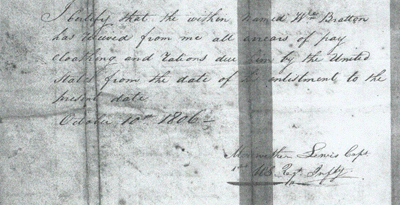 I certify that the within named Wm Bratton
has received from me all arrears of pay
cloathing and rations due him by the United
States from the date of his enlistment to the
present date.
October 10th 1806
Meriwether Lewis Capt
1st US Regt Infty.